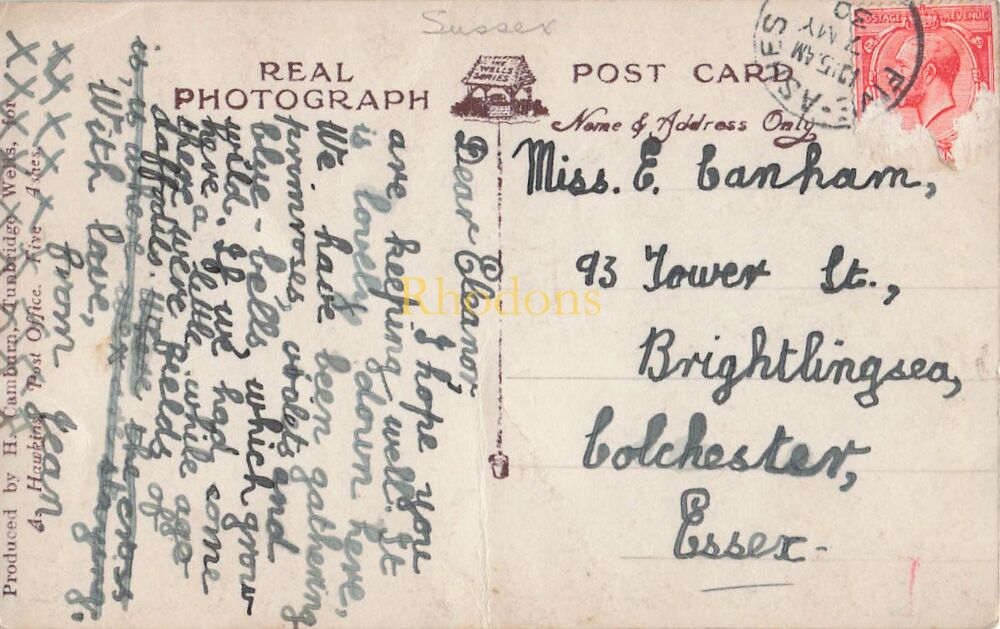 Sussex
REAL
PHOTOGRAPH
THE
WELLS
SERIES
POST CARD
Name & Address Only
POSTAGE REVENUE
12.15 AM
7 MY
30
FIVE-ASHES
Miss. E. Canham,
93 Tower St.,
Brightlingsea,
Colchester,
Essex-
Dear Eleanor
I hope you
are keeping well. It
is lovely down here,
We have been gathering
primroses, violets and
blue-bells which grow
wild. If we had come
here a little while ago
there were fields of
daffodils.
With love,
from Jean
Produced by H. Camburn, Tunbridge Wells, for
Hawkins, Post Office. Five Ashes.
Rhodons